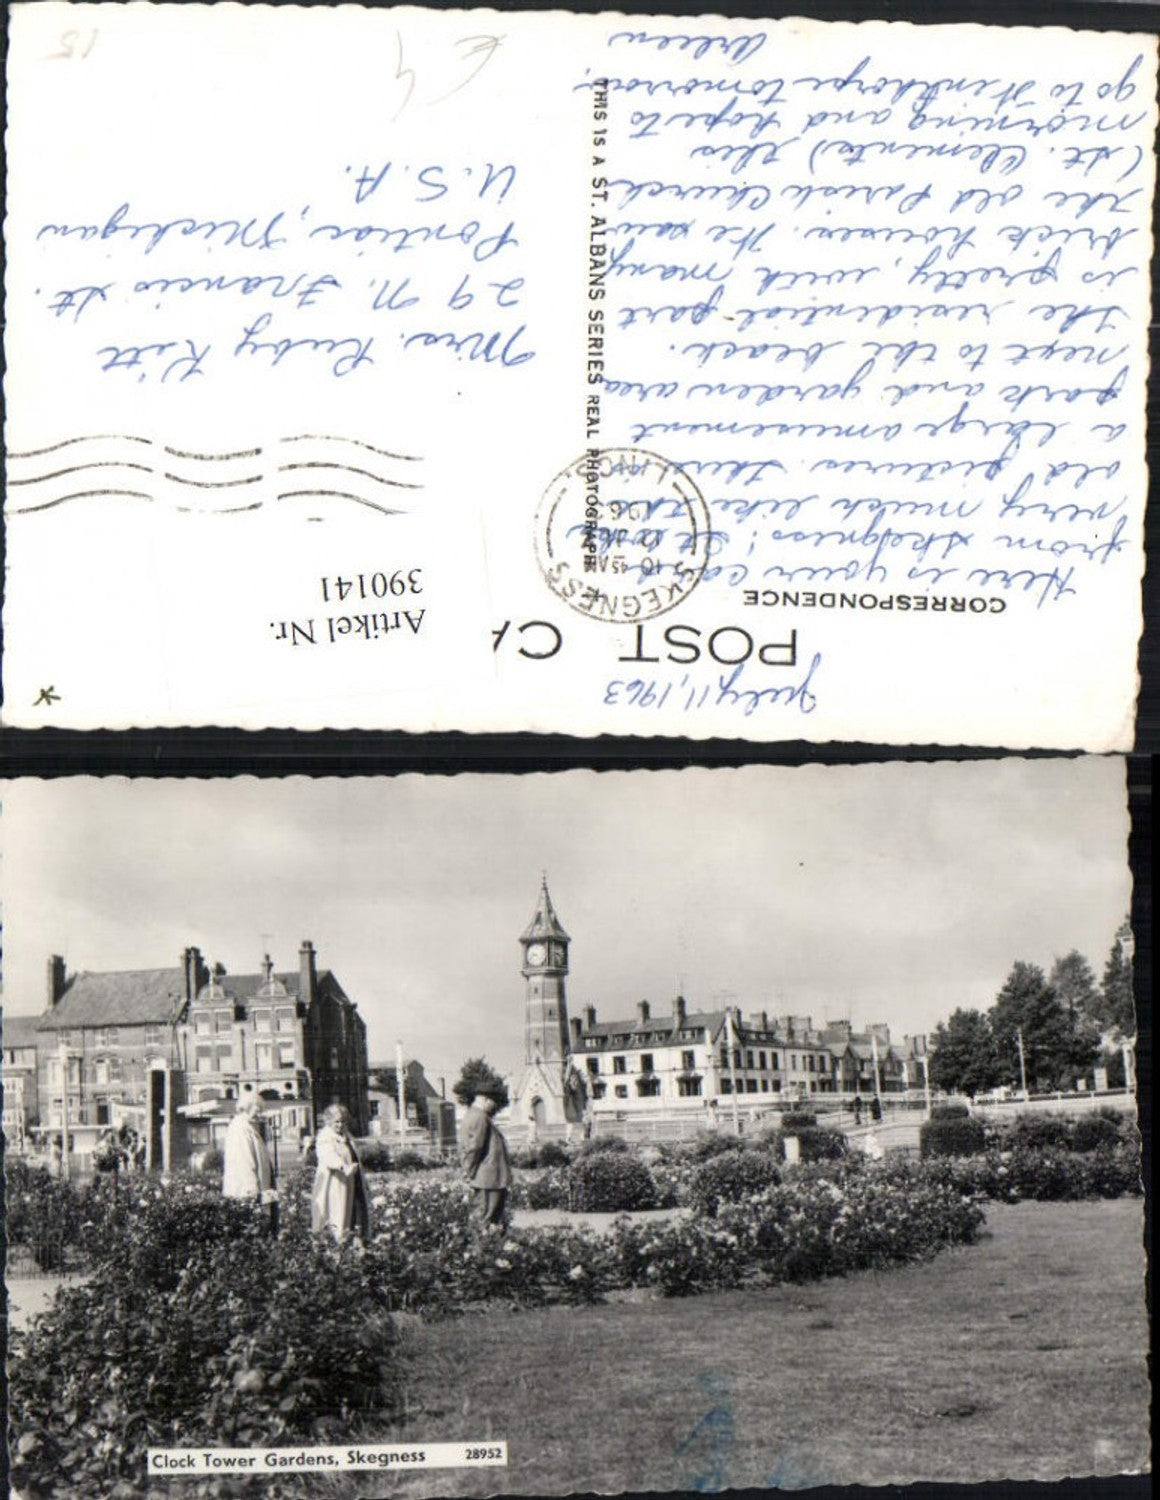 July 11, 1963
POST CA
CORRESPONDENCE
Here is your card
from Skegness! It looks
very much like the
old pictures. There is
a large amusement
park and garden area
next to the beach.
The residential part
is pretty, with many
brick houses. We saw
the old Parish Church
(St. Clements) this
morning and hope to
go to Winthorpe tomorrow.
Arleen
THIS IS A ST. ALBANS SERIES REAL PHOTOGRAPH
SKEGNESS
10 45 AM
12 JLY
1963
LINCS.
Artikel Nr.
390141
Mrs. Ruby Kitt
29 N. Francis St.
Pontiac, Michigan
U.S.A.
€4
15
Clock Tower Gardens, Skegness 28952